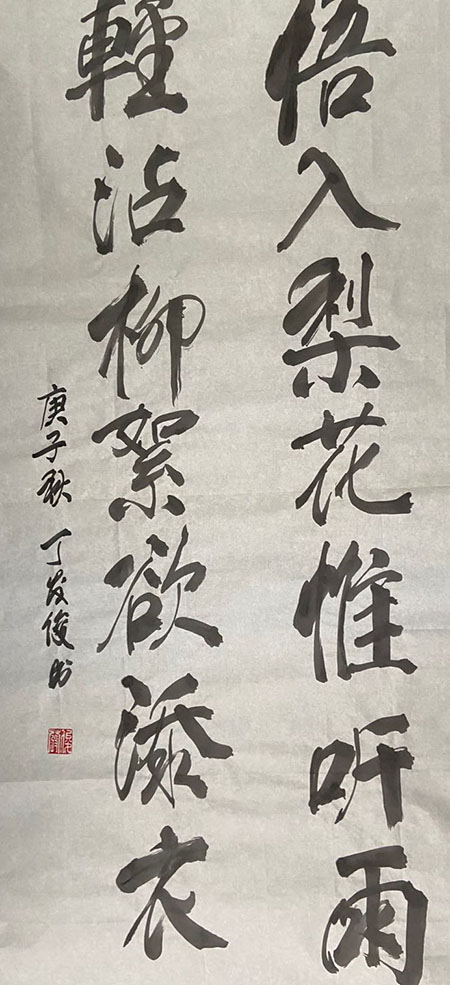 悟入梨花惟听雨
輕沾柳絮欲添衣
庚子秋丁发俊书